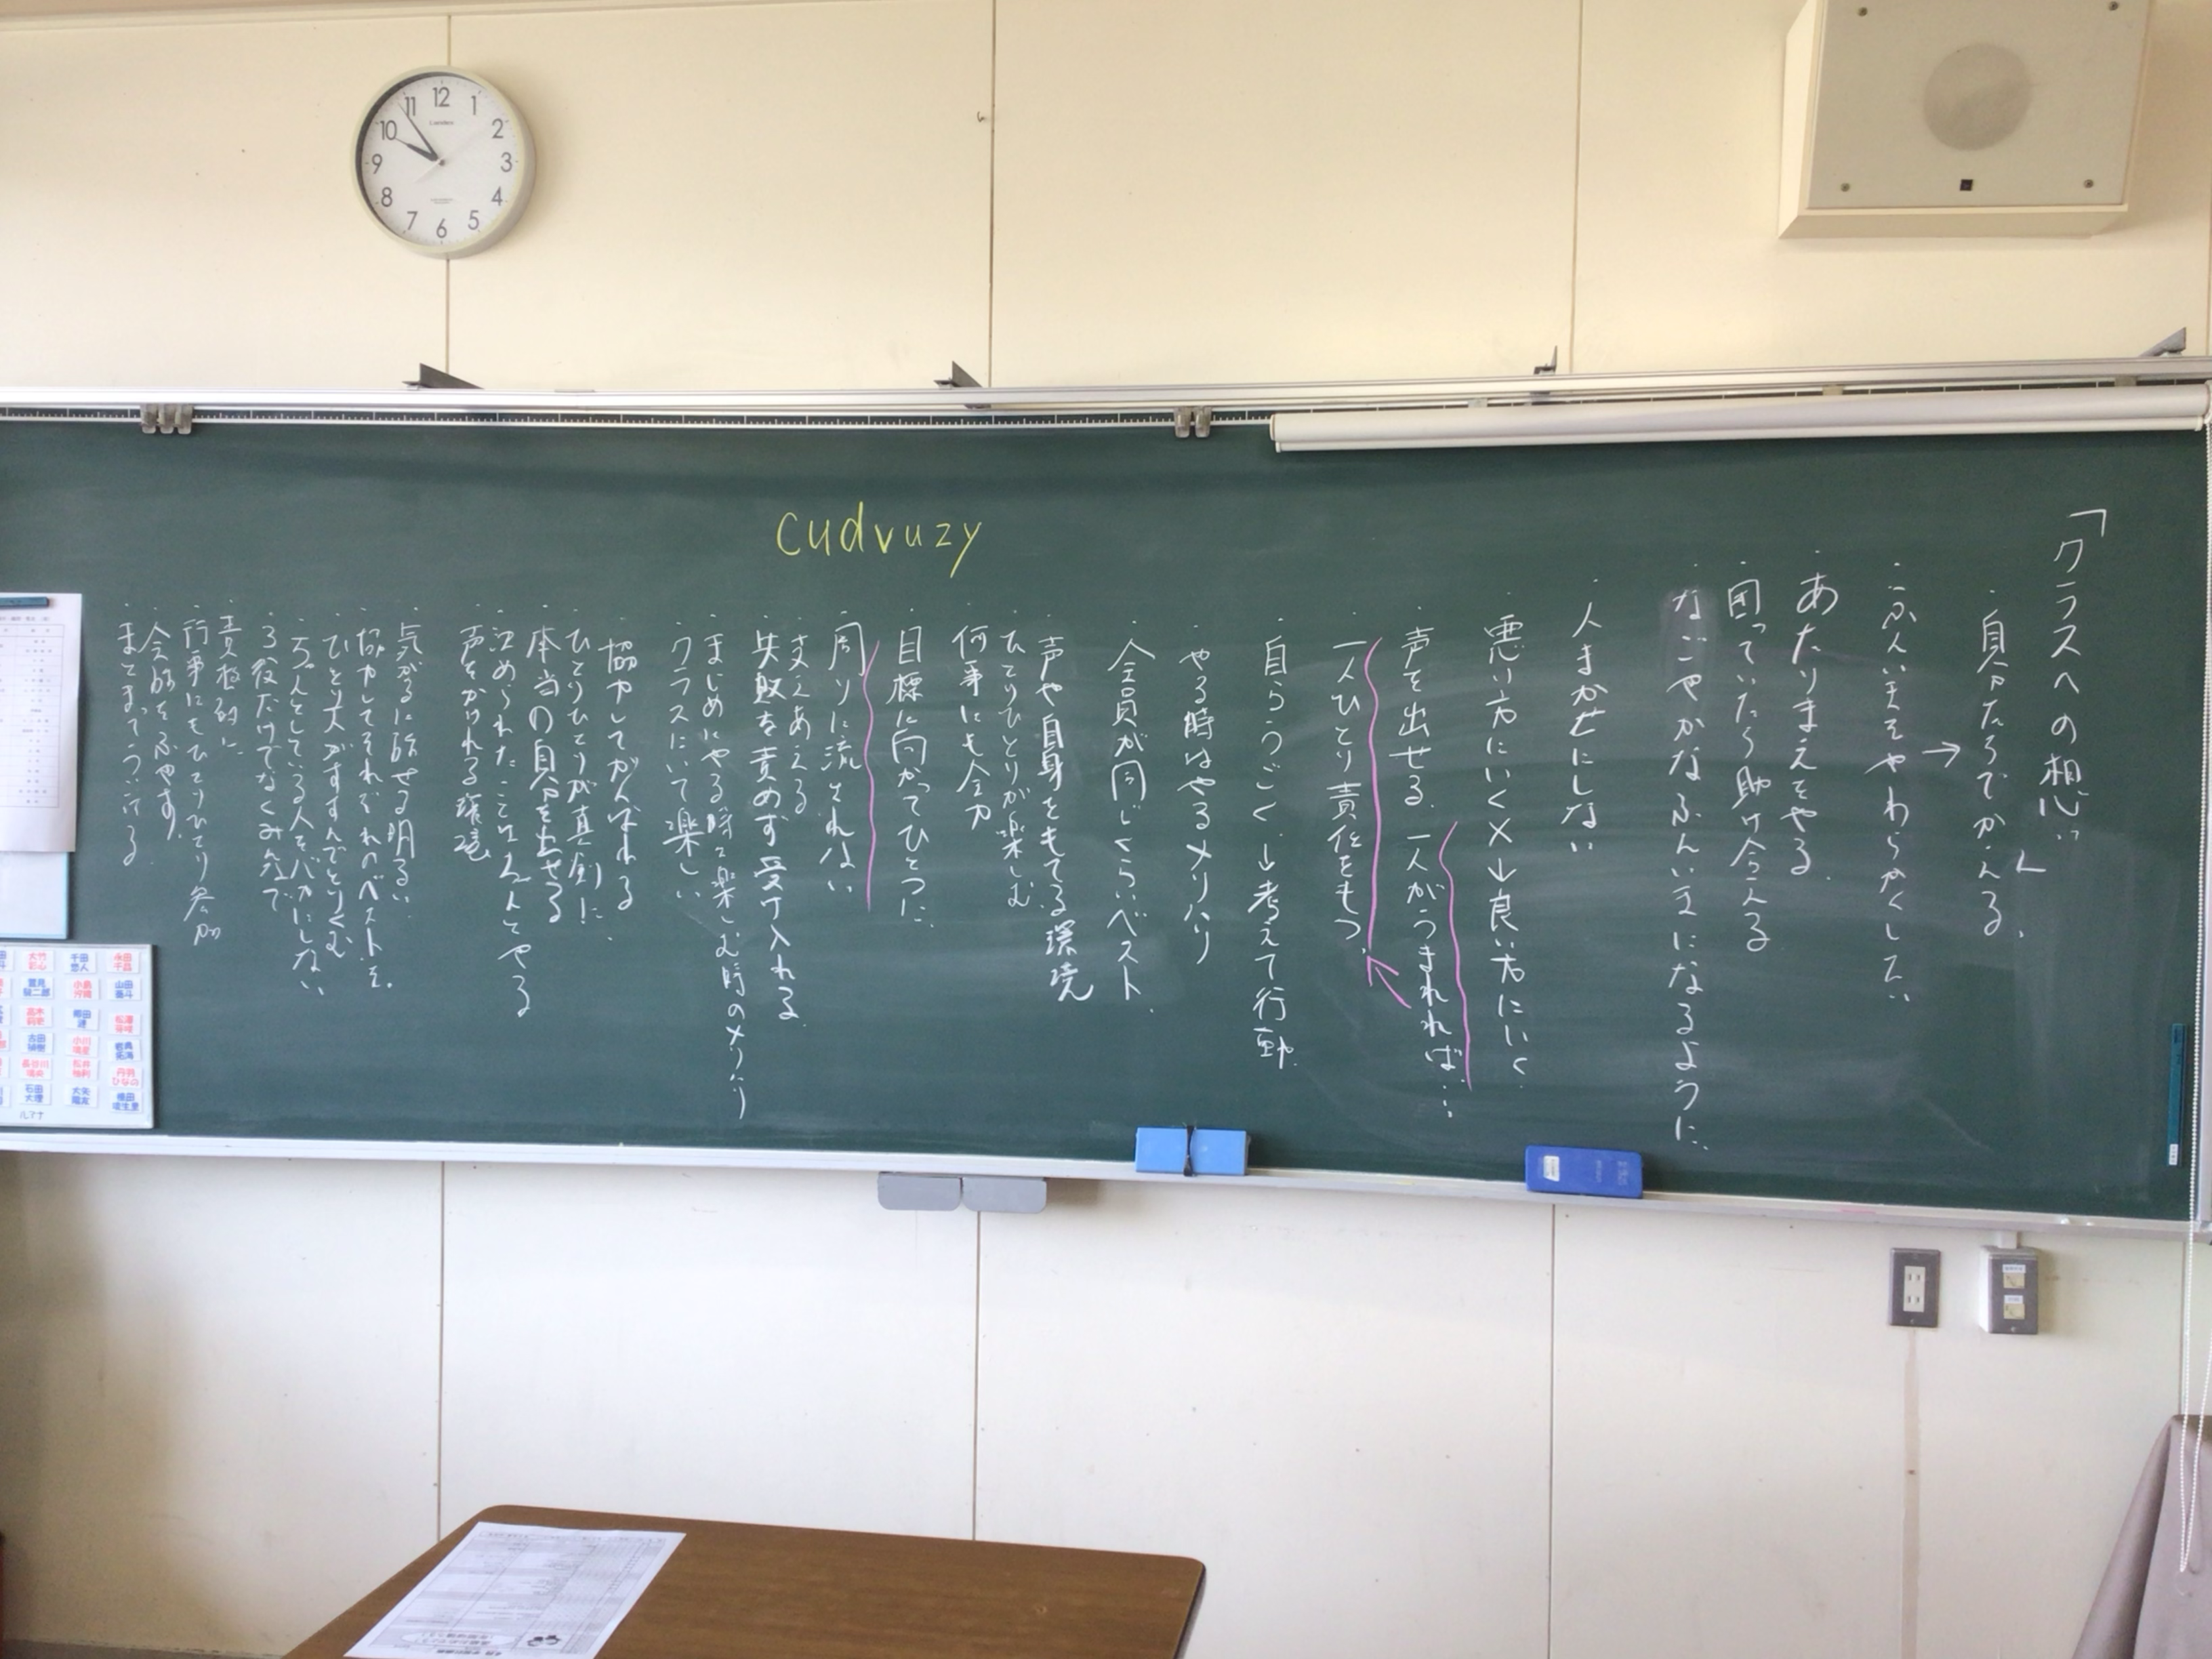 「クラスへの想い」
・自分たちでかえる。
・ふんいきをやわらかくしたい
・あたりまえをやる。
・困っていたら助け合える
・なごやかなふんいきになるように。
・人まかせにしない
・悪い方にいく×→良い方にいく
・声を出せる。一人がうまれれば…
・一人ひとり責任をもつ。
・自らうごく→考えて行動
・やる時はやるメリハリ
・全員が同じくらいベスト。
・声や自身をもてる環境
・ひとりひとりが楽しむ
・何事にも全力
・目標に向かってひとつに。
・周りに流されない
・支えあえる
・失敗を責めず受け入れる
・まじめにやる時と楽しむ時のメリハリ
・クラスにいて楽しい
・協力してがんばれる
・ひとりひとりが真剣に
・本当の自分を出せる
・決められたことはちゃんとやる
・声をかけれる環境
・気がるに話せる明るい
・協力してそれぞれのベストを。
・ひとり一人がすすんでとりくむ
・ちゃんとしている人をバカにしない
・3役だけでなくみんなで
・責極的に
・行事にもひとりひとり参加
・会話をふやす。
cudvuzy
12
1
2
3
4
5
6
7
8
9
10
11
永田
千田
大竹
山田
小島
松澤
郷田
高木
小川
古田
丹羽
ひなの
松井
長谷川
大矢
石田